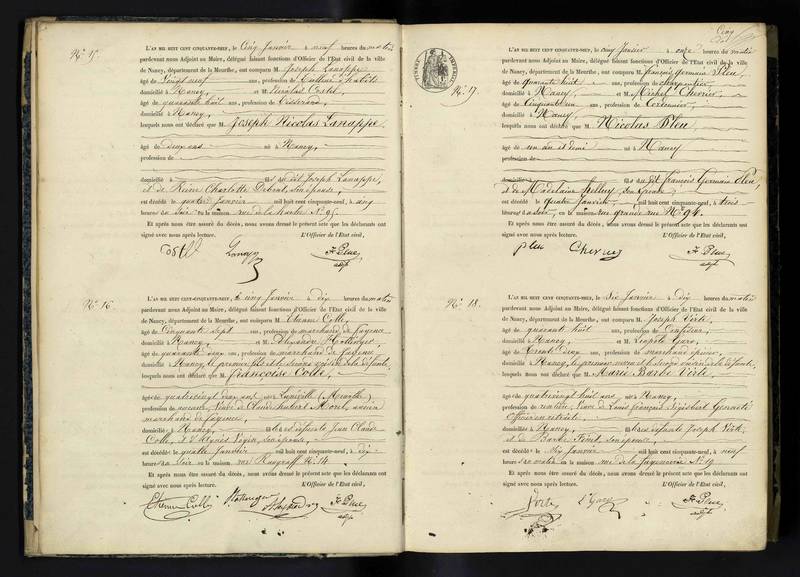 No. 15.
L'AN MIL HUIT CENT CINQUANTE-NEUF, le Cinq Janvier à neuf heures du matin
pardevant nous Adjoint au Maire, délégué faisant fonctions d'Officier de l'Etat civil de la ville
de Nancy, département de la Meurthe, ont comparu M. Joseph Lanappe
âgé de ans, profession de
domicilié à Nancy, et M. Nicolas Costel
âgé de quarante huit ans, profession de Tisserand,
domicilié à Nancy,
lesquels nous ont déclaré que M. Joseph Nicolas Lanappe
âgé de deux ans né à Nancy,
profession de
domicilié à fils du dit Joseph Lanappe,
et de Reine Charlotte son épouse,
est décédé le quatre Janvier mil huit cent cinquante-neuf, à cinq
heures du Soir en la maison rue de la No. 95.
Et après nous être assuré du décès, nous avons dressé le présent acte que les déclarants ont
signé avec nous après lecture. L'Officier de l'Etat civil,
No. 16.
L'AN MIL HUIT CENT CINQUANTE-NEUF, le Cinq Janvier à dix heures du matin
pardevant nous Adjoint au Maire, délégué faisant fonctions d'Officier de l'Etat civil de la ville
de Nancy, département de la Meurthe, ont comparu M. Etienne Colle,
âgé de Cinquante Sept ans, profession de marchand de fayence
domicilié à Nancy, et M. Alexandre Hottinger,
âgé de quarante deux ans, profession de marchand de faïence
domicilié à Nancy, le premier fils et le second de la défunte,
lesquels nous ont déclaré que M. Françoise Colle,
âgé de quatrevingt ans née à Lunéville (Meurthe)
profession de Veuve de Claude hubert Morel, ancien
marchand de fayence,
domicilié à Nancy, fille des défunts Jean Claude
Colle, et d'Agnès son épouse,
est décédé le quatre Janvier mil huit cent cinquante-neuf, à dix
heures du Soir en la maison rue No. 14.
Et après nous être assuré du décès, nous avons dressé le présent acte que les déclarants ont
signé avec nous après lecture. L'Officier de l'Etat civil,
Etienne Colle
Cinq
No. 17.
L'AN MIL HUIT CENT CINQUANTE-NEUF, le cinq Janvier à onze heures du matin
pardevant nous Adjoint au Maire, délégué faisant fonctions d'Officier de l'Etat civil de la ville
de Nancy, département de la Meurthe, ont comparu M. François Germain Pleu,
âgé de quarante huit ans, profession de charpentier,
domicilié à Nancy, et M. Michel Chevrier,
âgé de Cinquante un ans, profession de Cordonnier,
domicilié à Nancy,
lesquels nous ont déclaré que M. Nicolas Pleu,
âgé de un an et demi né à Nancy
profession de
domicilié à fils du dit François Germain Pleu,
et de Madelaine son épouse,
est décédé le quatre Janvier mil huit cent cinquante-neuf, à trois
heures du soir, en la maison rue grande rue No. 94.
Et après nous être assuré du décès, nous avons dressé le présent acte que les déclarants ont
signé avec nous après lecture. L'Officier de l'Etat civil,
pleu
No. 18.
L'AN MIL HUIT CENT CINQUANTE-NEUF, le Six Janvier à dix heures du matin
pardevant nous Adjoint au Maire, délégué faisant fonctions d'Officier de l'Etat civil de la ville
de Nancy, département de la Meurthe, ont comparu M. Joseph Virte,
âgé de quarante huit ans, profession de Confiseur,
domicilié à Nancy, et M. Léopold Gary,
âgé de Trente deux ans, profession de marchand épicier,
domicilié à Nancy, le premier neveu et le second de la défunte,
lesquels nous ont déclaré que M. Marie Barbe Virte,
âgé de quatrevingt huit ans née à Nancy,
profession de rentière, Veuve de Louis François Sigisbert
Officier en retraite
domicilié à Nancy, fille des défunts Joseph Virte
et de Barbe son épouse,
est décédé le Six Janvier mil huit cent cinquante-neuf, à neuf
heures du matin en la maison rue de la fayencerie No. 19
Et après nous être assuré du décès, nous avons dressé le présent acte que les déclarants ont
signé avec nous après lecture. L'Officier de l'Etat civil,